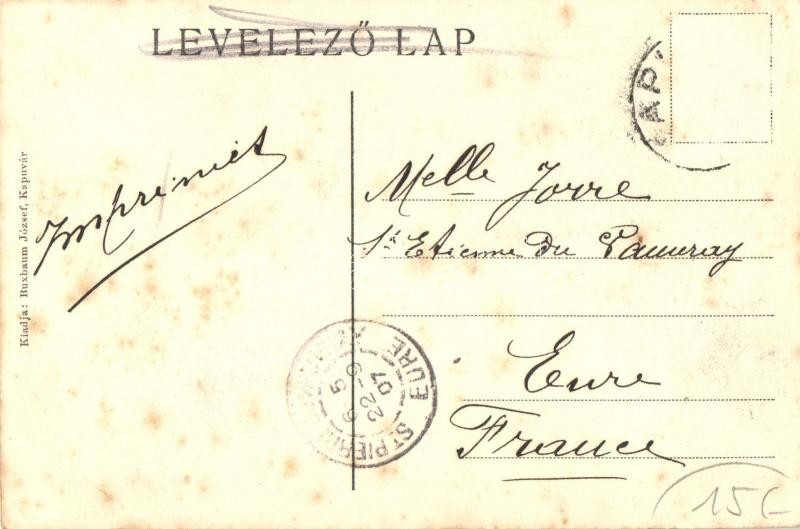 LEVELEZŐ LAP
KAP
Kiadja: Buxbaum József, Kspuvár
Imprimés
Melle Jorre
St Etienne Du Vauvray
Eure
France
ST PIERRE
EURE
6 5
22-9
07
15(-